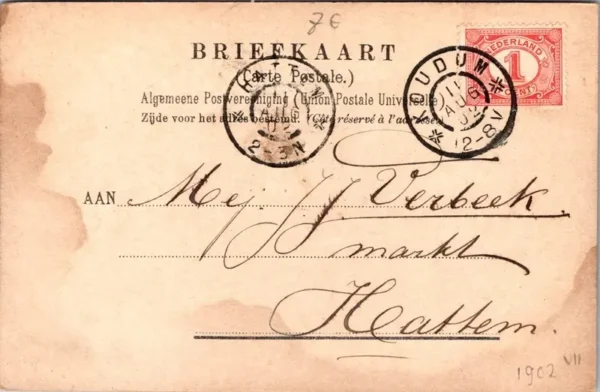 7E
BRIEFKAART
(Carte Postale.)
Algemeene Postvereeniging (Union Postale Universelle)
Zijde voor het adres bestemd. (Côté réservé à l'adresse.)
NEDERLAND
1
CENT
KOUDUM
11
AUG
02
12-8V
HATTEM
2-3N
AAN Mej. J. J. Verbeek.
markt
Hattem.
1902 VII